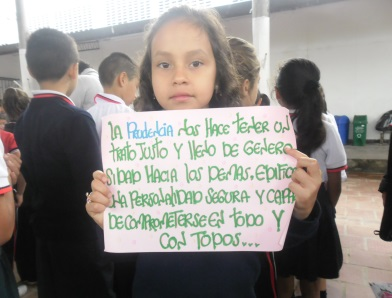 LA PRUDENCIA NOS HACE TENER UN
TRATO JUSTO Y LLENO DE GENERO
SIDAD HACIA LOS DEMAS, EDIFICA
UNA PERSONALIDAD SEGURA Y CAPAZ
DE COMPROMETERSE EN TODO Y
CON TODOS...